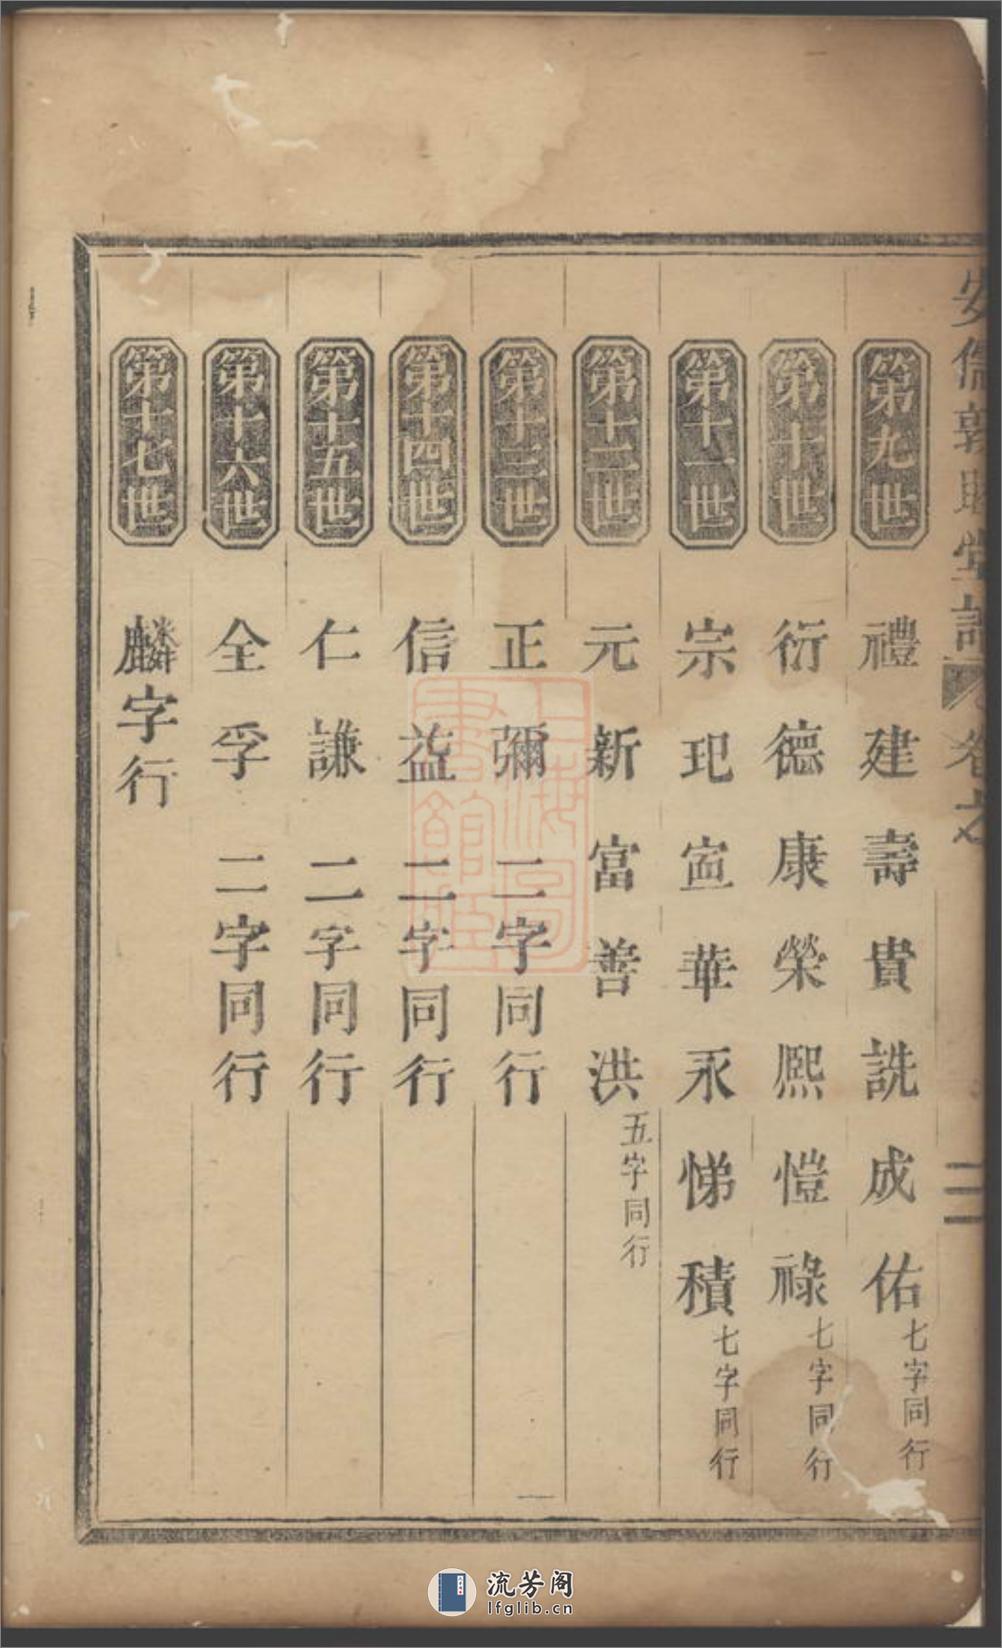 第九世 禮建壽貴詵成佑 七字同行
第十世 衍德康榮熙愷祿 七字同行
第十一世 宗玘宣華永悌積 七字同行
第十二世 元新富善洪 五字同行
第十三世 正彌 二字同行
第十四世 信益 二字同行
第十五世 仁謙 二字同行
第十六世 全孚 二字同行
第十七世 麟字行
上海圖書館藏
流芳阁
lfglib.cn